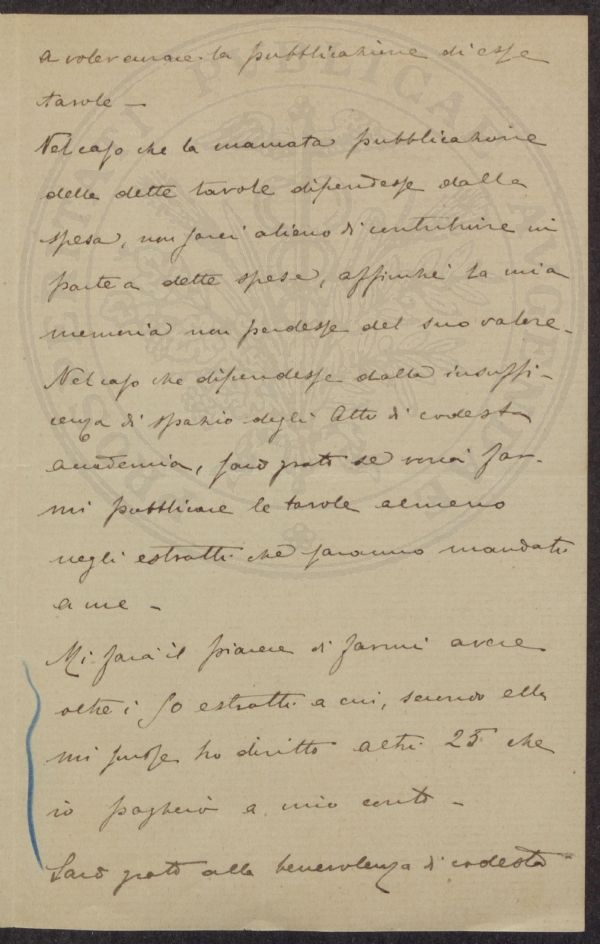 a voler curare la pubblicazione di esse
tavole —
Nel caso che la mancata pubblicazione
delle dette tavole dipendesse dalla
spesa, non sarei alieno di contribuire in
parte a dette spese, affinchè la mia
memoria non perdesse del suo valore —
Nel caso che dipendesse dalla insuffi-
cenza di spazio degli Atti di codesta
accademia, sarò grato se vorrà far-
mi pubblicare le tavole almeno
negli estratti che saranno mandati
a me —
Mi farà il piacere di farmi avere
oltre i 50 estratti a cui, secondo ella
mi scrisse ho diritto altri 25 che
io pagherò a mio conto —
Sarò grato alla benevolenza di codesta